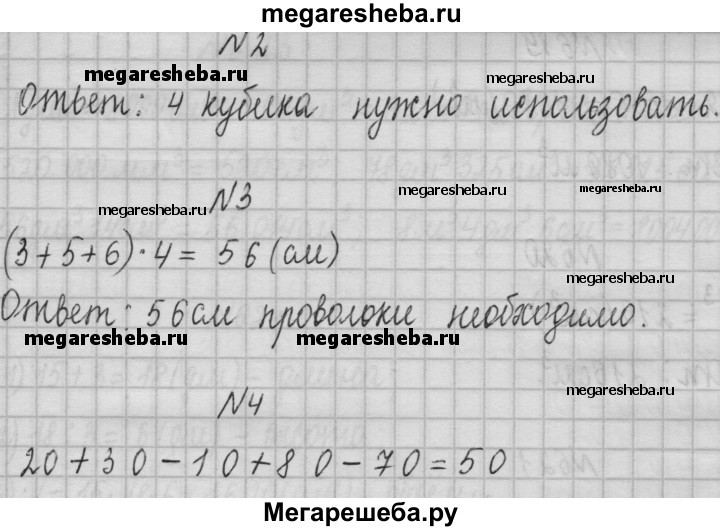 megaresheba.ru
N2
megaresheba.ru
megaresheba.ru
Ответ: 4 кубика нужно использовать.
N3
megaresheba.ru
megaresheba.ru
megaresheba.ru
(3+5+6)·4= 56(см)
megaresheba.ru
Ответ: 56см проволоки необходимо.
megaresheba.ru
megaresheba.ru
megaresheba.ru
N4
20+30-10+80-70=50
Мегарешеба.ру